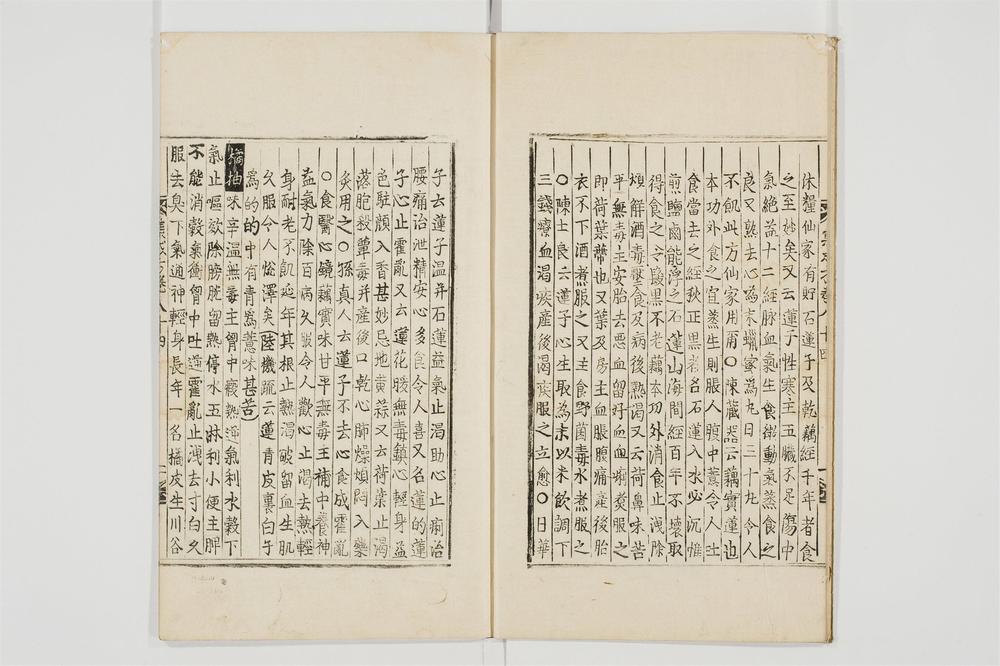 休糧仙家有貯石蓮子及乾藕經千年者食
之至妙矣又云蓮子性寒主五臟不足傷中
氣絶益十二經脉血氣生食微動氣蒸食之
良又熟去心為末蠟蜜為丸日三十丸令人
不飢此方仙家用爾○陳藏器云藕實蓮也
本功外食之宜蒸生則脹人腹中薏令人吐
食當去之經秋正黒者名石蓮入水必沉惟
煎鹽鹵能浮之石蓮山海間經百年不壞取
得食之令髮黒不老藕本功外消食止洩除
煩解酒毒壓食及病後熱渴又云荷鼻味苦
平無毒主安胎去悪血留好血血痢煮服之
即荷葉蔕也又葉及房主血脹腹痛産後胎
衣不下酒煮服之又主食野菌毒水煮服之
○陳士良云蓮子心生取為末以米飲調下
三錢療血渴疾産後渴疾服之立愈○日華
子云蓮子温并石蓮益氣止渴助心止痢治
腰痛治泄精安心多食令人喜又名蓮的蓮
子心止霍亂又云蓮花暖無毒鎮心輕身益
色駐顔入香甚妙忌地黄蒜又云荷葉止渴
落胞殺蕈毒并産後口乾心肺燥煩悶入藥
炙用之○孫真人云蓮子不去心食成霍亂
○食醫心鏡藕實味甘平無毒主補中養神
益氣力除百病久服令人歡心止渴去熱輕
身耐老不飢延年其根止熱渴破留血生肌
久服令人悅澤矣陸機疏云蓮青皮裏白子
為的的中有青為薏味甚苦
橘柚味辛温無毒主胷中瘕熱逆氣利水穀下
氣止嘔欬除膀胱留熱停水五淋利小便主脾
不能消穀氣衝胷中吐逆霍亂止洩去寸白久
服去臭下氣通神輕身長年一名橘皮生川谷